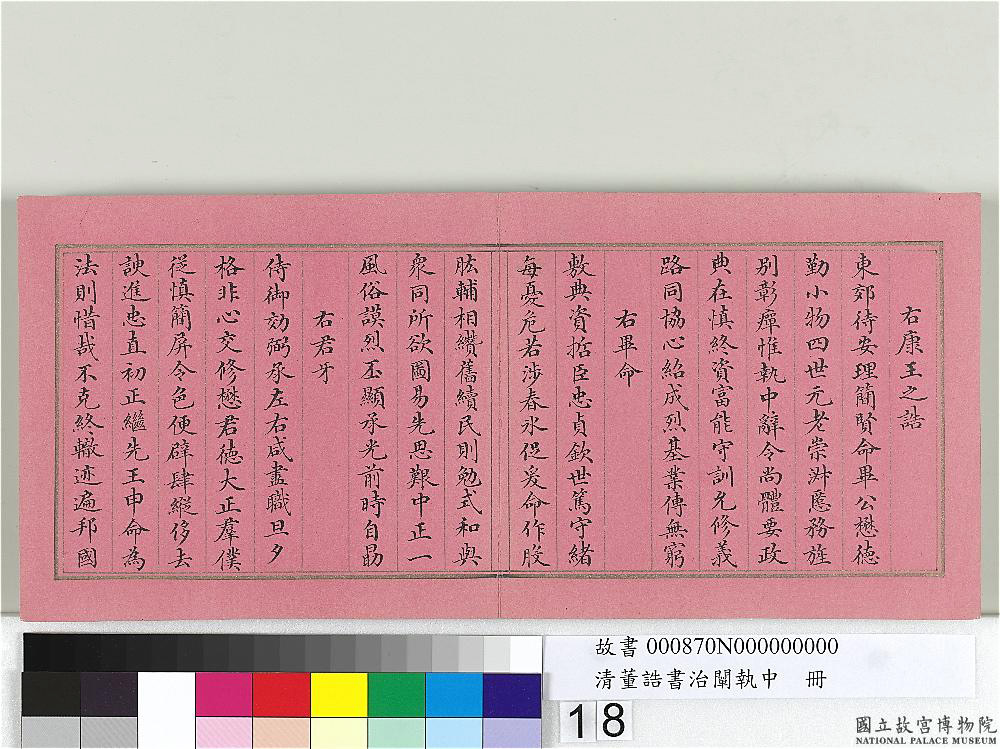 右康王之誥
東郊待安理簡賢命畢公懋德
勤小物四世元老崇淑慝務旌
別彰癉惟執中辭令尚體要政
典在慎終資富能守訓允修義
路同協心紹成烈基業傳無窮
右畢命
敷典資掂臣忠貞欽世篤守緒
每憂危若涉春氷促爰命作股
肱輔相纘舊績民則勉式和與
衆同所欲圖易先思艱中正一
風俗謨烈丕顯承光前時自勗
右君牙
侍御効弼承左右咸盡職旦夕
格非心交修懋君德大正羣僕
從慎簡屏令色便辟肆縱侈去
諛進忠直初正繼先王申命為
法則惜哉不克終轍迹遍邦國
故書 000870N000000000
清董誥書治闡執中 冊
18
國立故宮博物院
NATIONAL PALACE MUSEUM